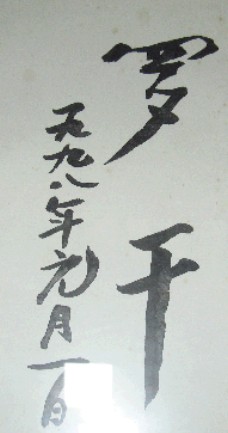 罗干
一九九八年元月一日